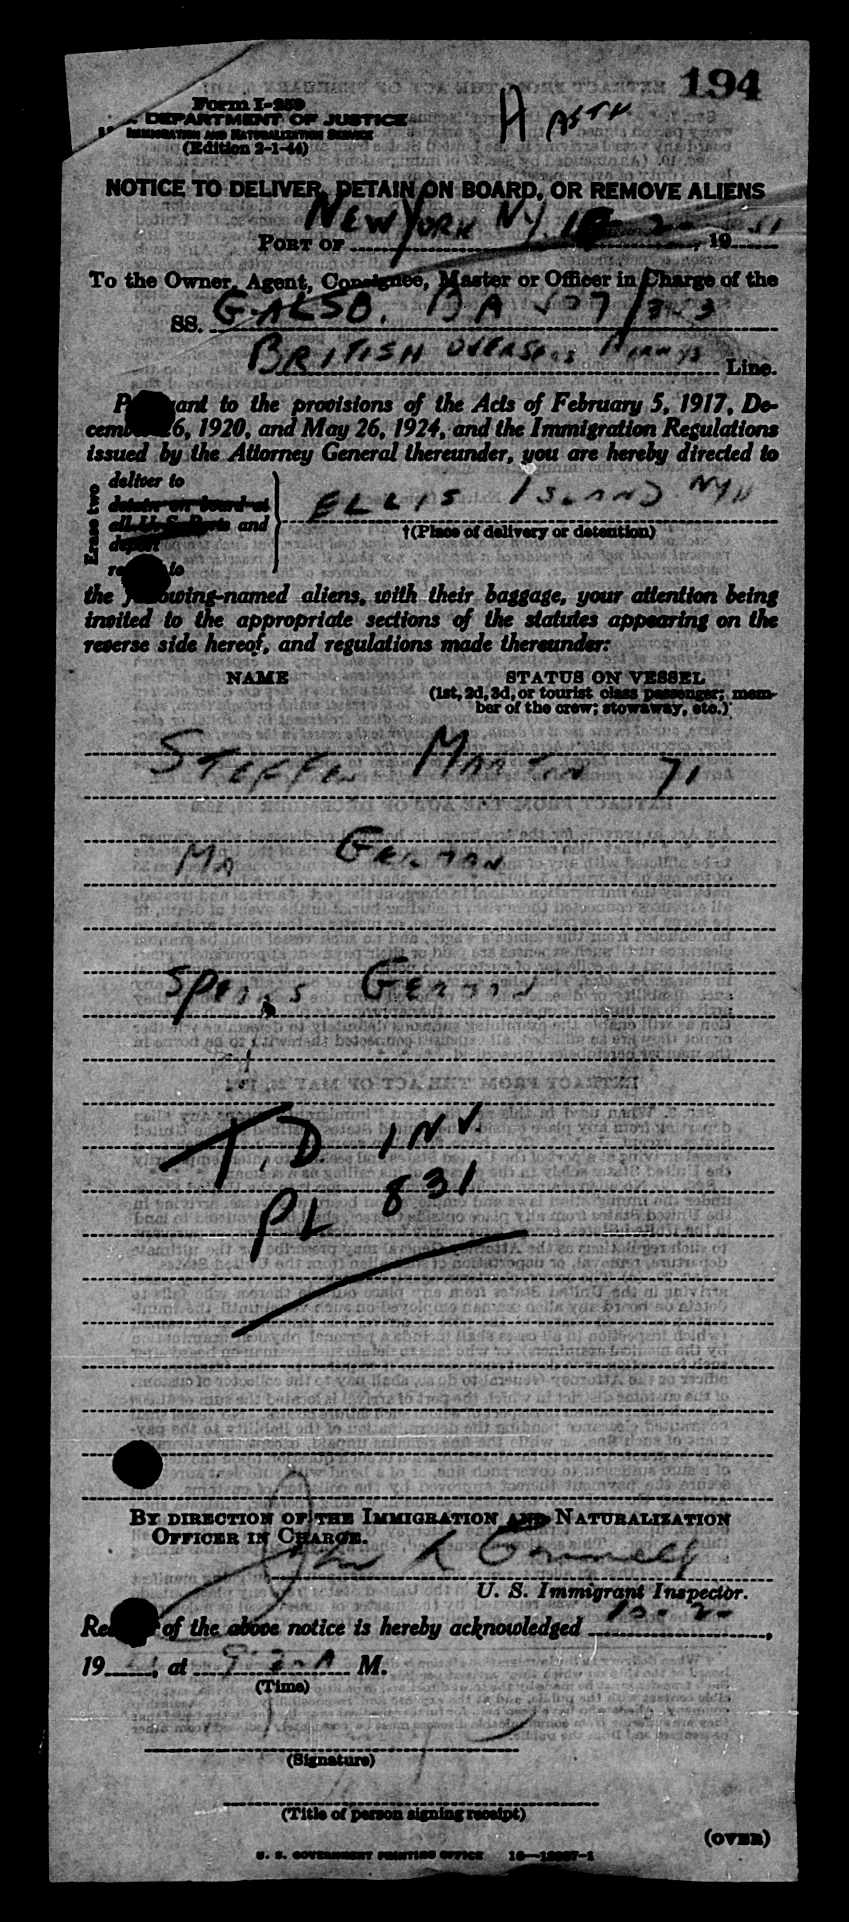 194
Form I-259
DEPARTMENT OF JUSTICE
IMMIGRATION AND NATURALIZATION SERVICE
(Edition 2-1-44)
NOTICE TO DELIVER, DETAIN ON BOARD, OR REMOVE ALIENS
PORT OF NEW YORK NY. 19
To the Owner, Agent, Consignee, Master or Officer in Charge of the
SS. G-ALSB. BA
BRITISH OVERSEAS AIRWYS Line.
to the provisions of the Acts of February 5, 1917, De-
6, 1920, and May 26, 1924, and the Immigration Regulations
issued by the Attorney General thereunder, you are hereby directed to
Erase two
deliver to
detain on board at
all U. S. Ports and
deport
to
ELLIS ISLAND
†(Place of delivery or detention)
the following-named aliens, with their baggage, your attention being
invited to the appropriate sections of the statutes appearing on the
reverse side hereof, and regulations made thereunder:
NAME
STATUS ON VESSEL
(1st, 2d, 3d, or tourist class passenger; mem-
ber of the crew; stowaway, etc.)
STEFFEN MARTIN 71
MA GERMAN
SPEAKS GERMAN
T.D INV.
PL 831
BY DIRECTION OF THE IMMIGRATION AND NATURALIZATION
OFFICER IN CHARGE.
U. S. Immigrant Inspector.
of the above notice is hereby acknowledged 10-2-,
19, at M.
(Time)
(Signature)
(Title of person signing receipt)
(OVER)
U. S. GOVERNMENT PRINTING OFFICE